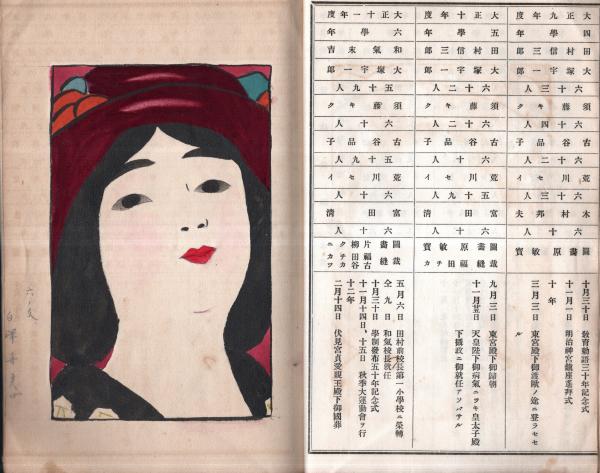 大正九年度
四學年
田村信三郎
大塚宇一郎
六十三人
須藤キク
六十四人
古谷品子
六十二人
荒川セイ
六十三人
木村邦夫
六十人
圖畫 原敏寶
十月三十日 敎育勅語三十年記念式
十一月一日 明治神宮鎭座遙拜式
十年
三月三日 東宮殿下御渡歐ノ途ニ登ラセセル
大正十年度
五學年
田村信三郎
大塚宇一郎
六十二人
須藤キク
六十二人
古谷品子
六十人
荒川セイ
五十九人
富田清
六十人
圖畫 原敏寶
裁縫 福田チカ
九月三日 東宮殿下御歸朝
十一月廿五日 天皇陛下御病氣ニヨキ皇太子殿
下攝政ニ御就任アソバサル
大正十一年度
六學年
和氣末吉
大塚宇一郎
五十九人
須藤キク
六十人
古谷品子
五十九人
荒川セイ
六十人
富田清
六十人
圖畫 片柳クニ
裁縫 福田チカ
古谷カツ
五月六日 田村前校長第一小學校ニ榮轉
仝九日 和氣校長就任
十月三十日 學制發布五十年記念式
十一月十四日、十五日 秋季大運動會ヲ行
十二年
二月十四日 伏見宮貞愛親王殿下御國葬